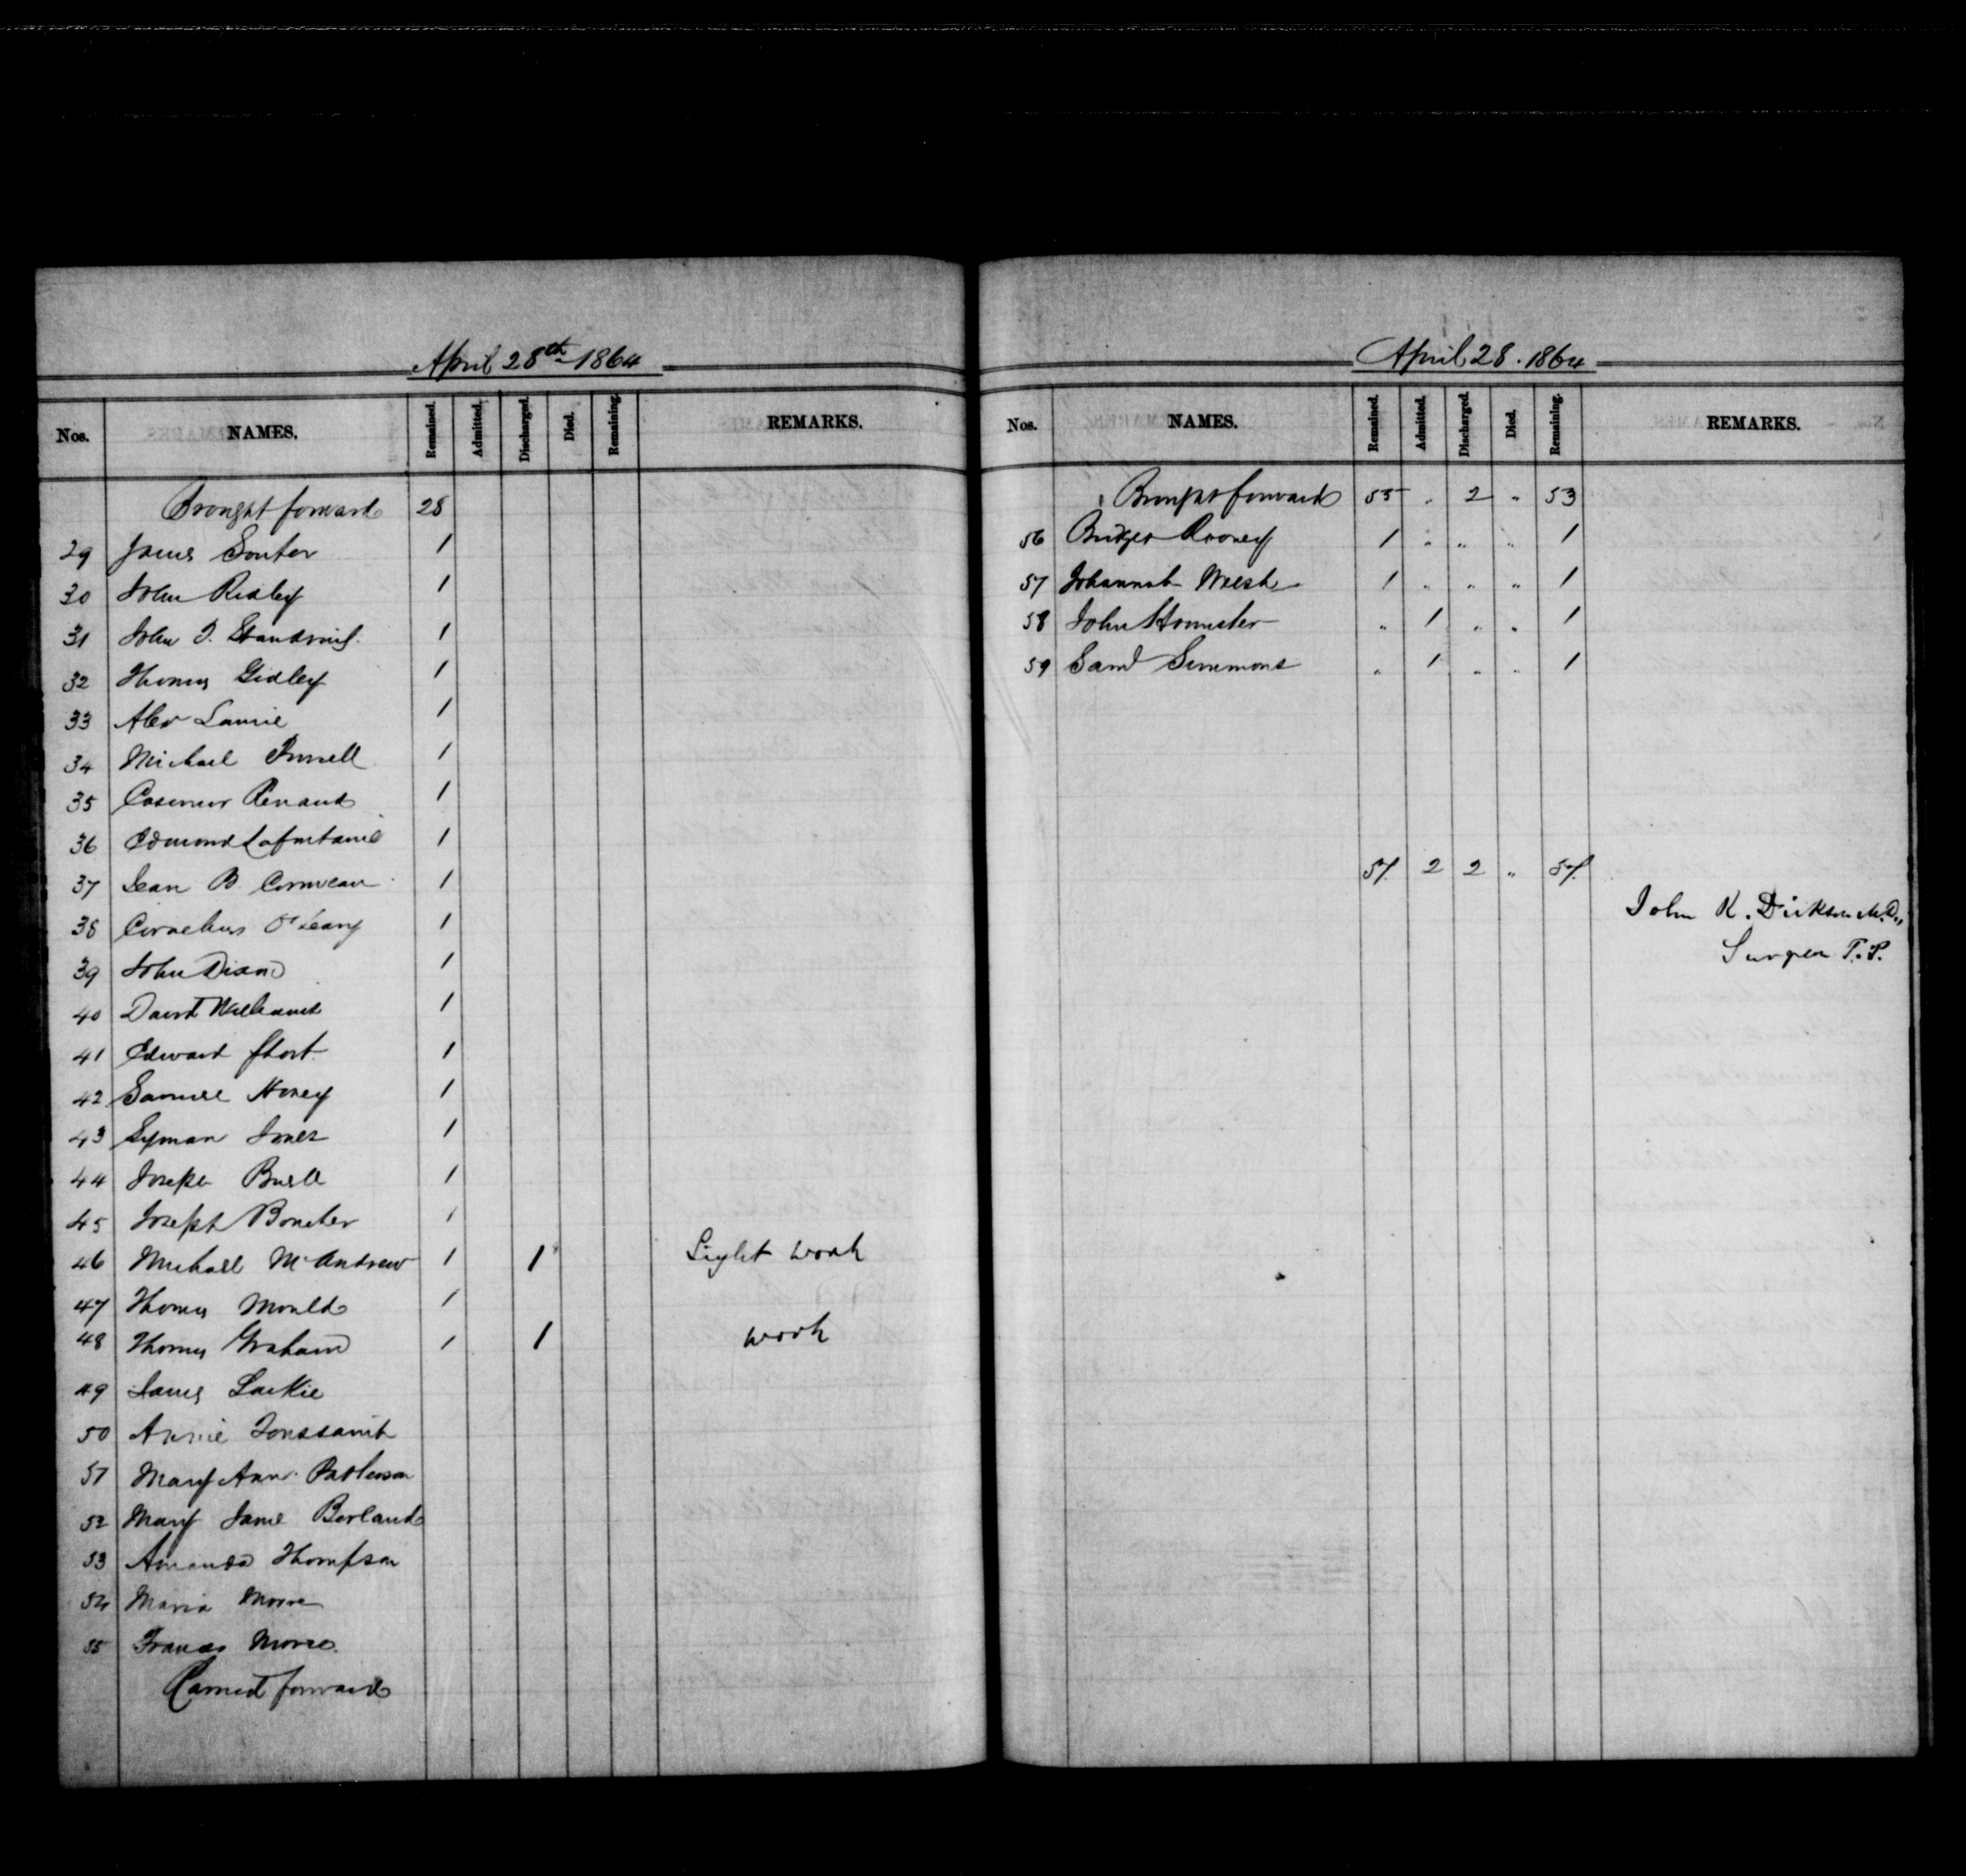 April 28th 1864
Nos. NAMES. Remained. Admitted. Discharged. Died. Remaining. REMARKS.
Brought forward 28
29 James Souter 1
30 John Ridley 1
31 John 1
32 Thomas Gidley 1
33 Alex Laurie 1
34 Michael 1
35 Renaud 1
36 Edmond Lafontaine 1
37 Jean B Cormeau 1
38 Cornelius O'Leary 1
39 John Dixon 1
40 David Williams 1
41 Edward Short 1
42 Samuel Honey 1
43 Lyman Jones 1
44 Joseph 1
45 Joseph Boucher 1
46 Michael McAndrew 1 1 Light work
47 Thomas Mould 1
48 Thomas Graham 1 1 work
49 James Lackie
50 Annie Toussaint
51 Mary Ann Patterson
52 Mary Jane Borland
53 Amanda Thompson
54 Maria Moore
55 Frances Morse
Carried forward
April 28. 1864
Nos. NAMES. Remained. Admitted. Discharged. Died. Remaining. REMARKS.
Brought forward 55 " 2 " 53
56 Bridget Rooney 1 " " " 1
57 Johannah Welsh 1 " " " 1
58 John " 1 " " 1
59 Saml Simmons " 1 " " 1
57 2 2 " 57
John R. Dickson M.D.,
Surgeon P.P.